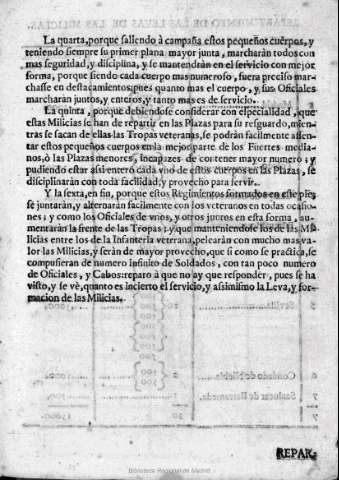 La quarta, porque saliendo à campaña estos pequeños cuerpos, y
teniendo siempre su primer plana mayor junta, marcharàn todos con
mas seguridad, y disciplina, y se mantendràn en el servicio con mejor
forma, porque siendo cada cuerpo mas numeroso, fuera preciso mar-
chasse en destacamientos; pues quanto mas el cuerpo, y sus Oficiales
marcharàn juntos, y enteros, y tanto mas es de servicio.
La quinta, porque debiendose considerar con especialidad, que
estas Milicias se han de repartir en las Plazas para su resguardo, mien-
tras se sacan de ellas las Tropas veteranas, se podràn facilmente assen-
tar estos pequeños cuerpos en la mejor parte de los Fuertes media-
nos, ò las Plazas menores, incapazes de contener mayor numero; y
pudiendo estar assi entero cada vno de estos cuerpos en las Plazas, se
disciplinaràn con toda facilidad, y provecho para servir.
Y la sexta, en fin, porque estos Regimientos formados en este pie,
se juntaràn, y alternaràn facilmente con los veteranos en todas ocasio-
nes; y como los Oficiales de vnos, y otros juntos en esta forma, au-
mentaràn la frente de las Tropas; y que manteniendose los de las Mi-
licias entre los de la Infanteria veterana, pelearàn con mucho mas va-
lor las Milicias, y seràn de mayor provecho, que si como se practica, se
compusieran de numero infinito de Soldados, con tan poco numero
de Oficiales, y Cabos: reparo à que no ay que responder, pues se ha
visto, y se vè, quanto es incierto el servicio, y assimismo la Leva, y for-
macion de las Milicias.
REPAR-
Biblioteca Regional de Madrid